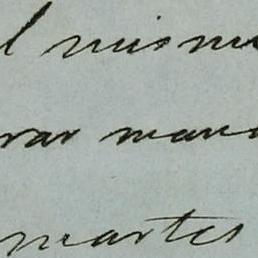 l mismo
rar man
martes